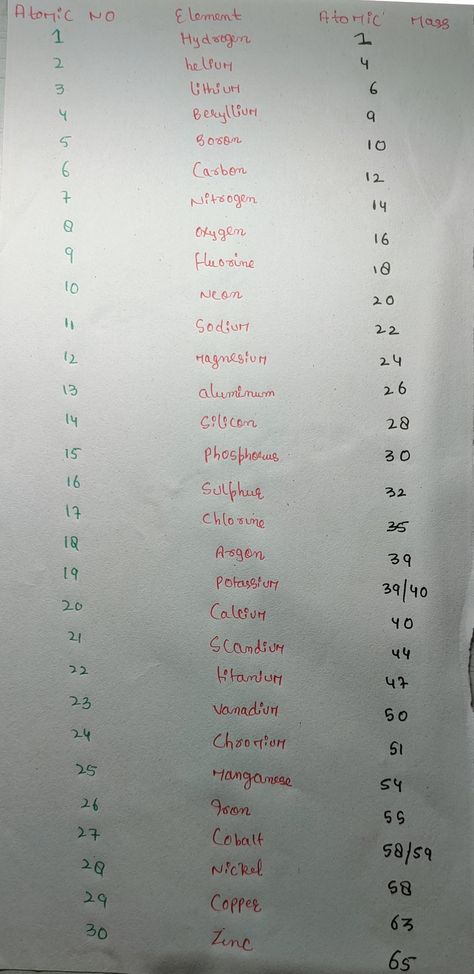 Atomic NO Element Atomic Mass
1 Hydrogen 1
2 helium 4
3 Lithium 6
4 Beryllium 9
5 Boron 10
6 Carbon 12
7 Nitrogen 14
8 Oxygen 16
9 fluorine 18
10 Neon 20
11 Sodium 22
12 Magnesium 24
13 aluminum 26
14 Silicon 28
15 Phosphorus 30
16 Sulphur 32
17 Chlorine 35
18 Argon 39
19 Potassium 39/40
20 Calcium 40
21 Scandium 44
22 titanium 47
23 Vanadium 50
24 Chromium 51
25 Manganese 54
26 Iron 55
27 Cobalt 58/59
28 Nickel 58
29 Copper 63
30 Zinc 65